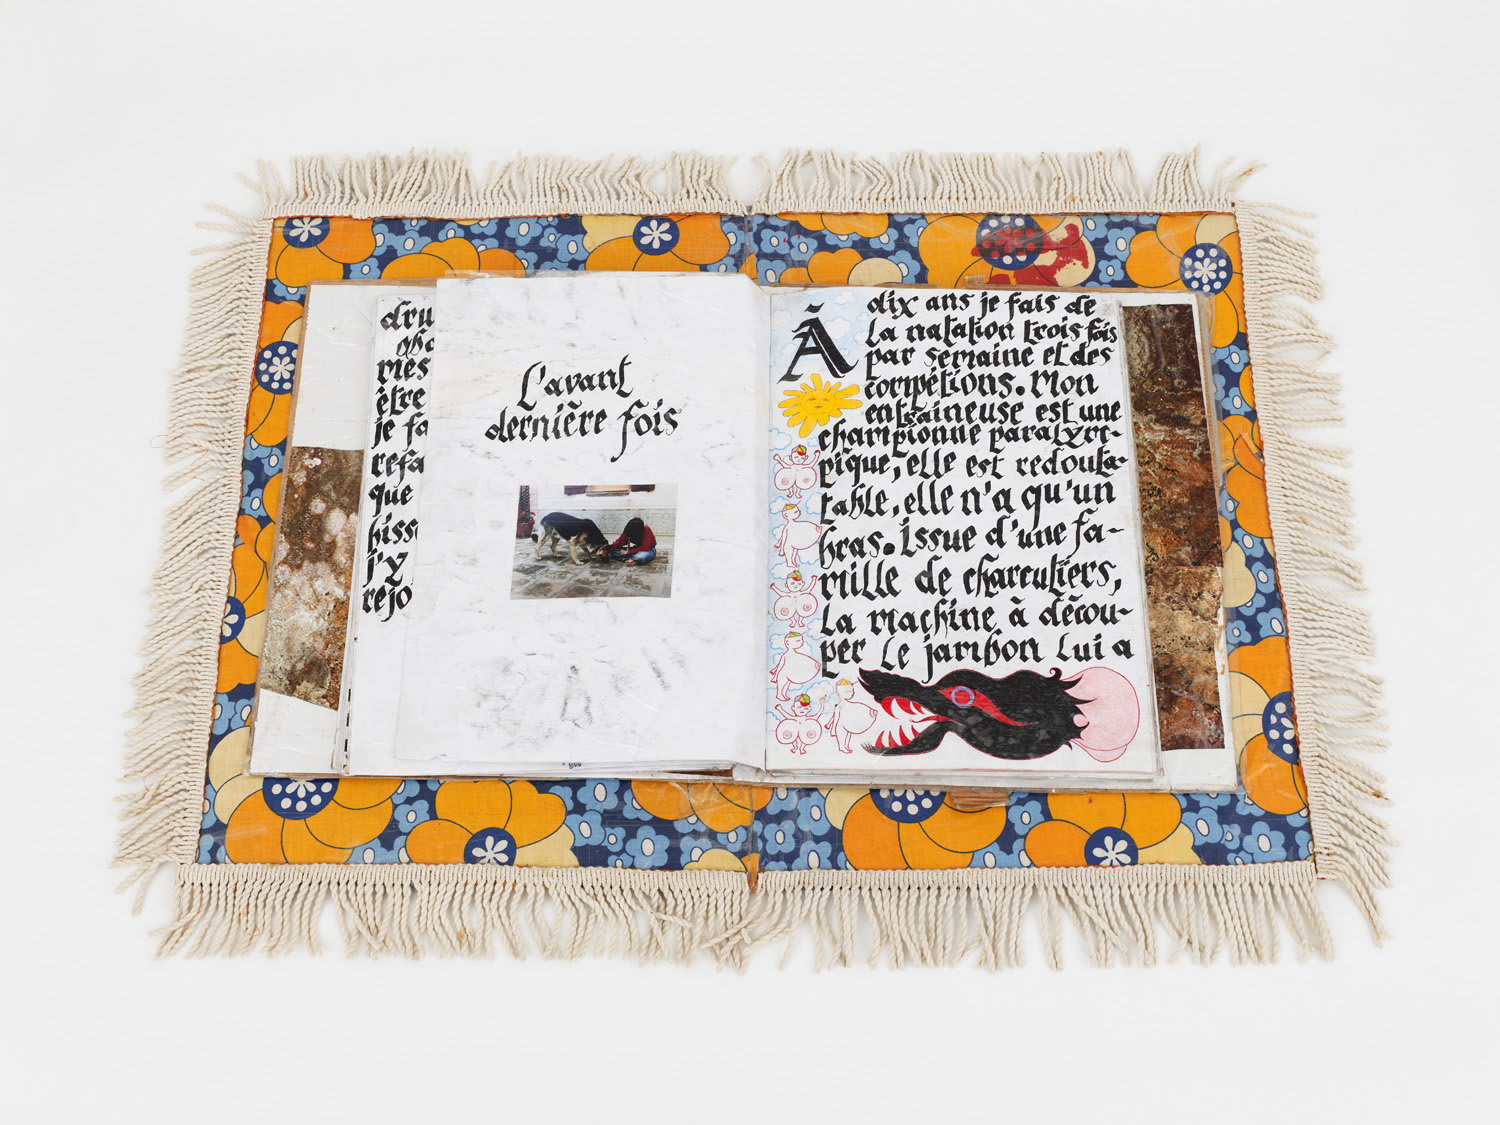 dru
mes
être
je fa
refa
que
bisso
j'y
rejo
L'avant
dernière fois
À dix ans je fais de
la natation trois fois
par semaine et des
compétions. Mon
entraineuse est une
championne paralym-
pique, elle est redou-
table, elle n'a qu'un
bras. Issue d'une fa-
mille de charcutiers,
la machine à décou-
per le jambon lui a